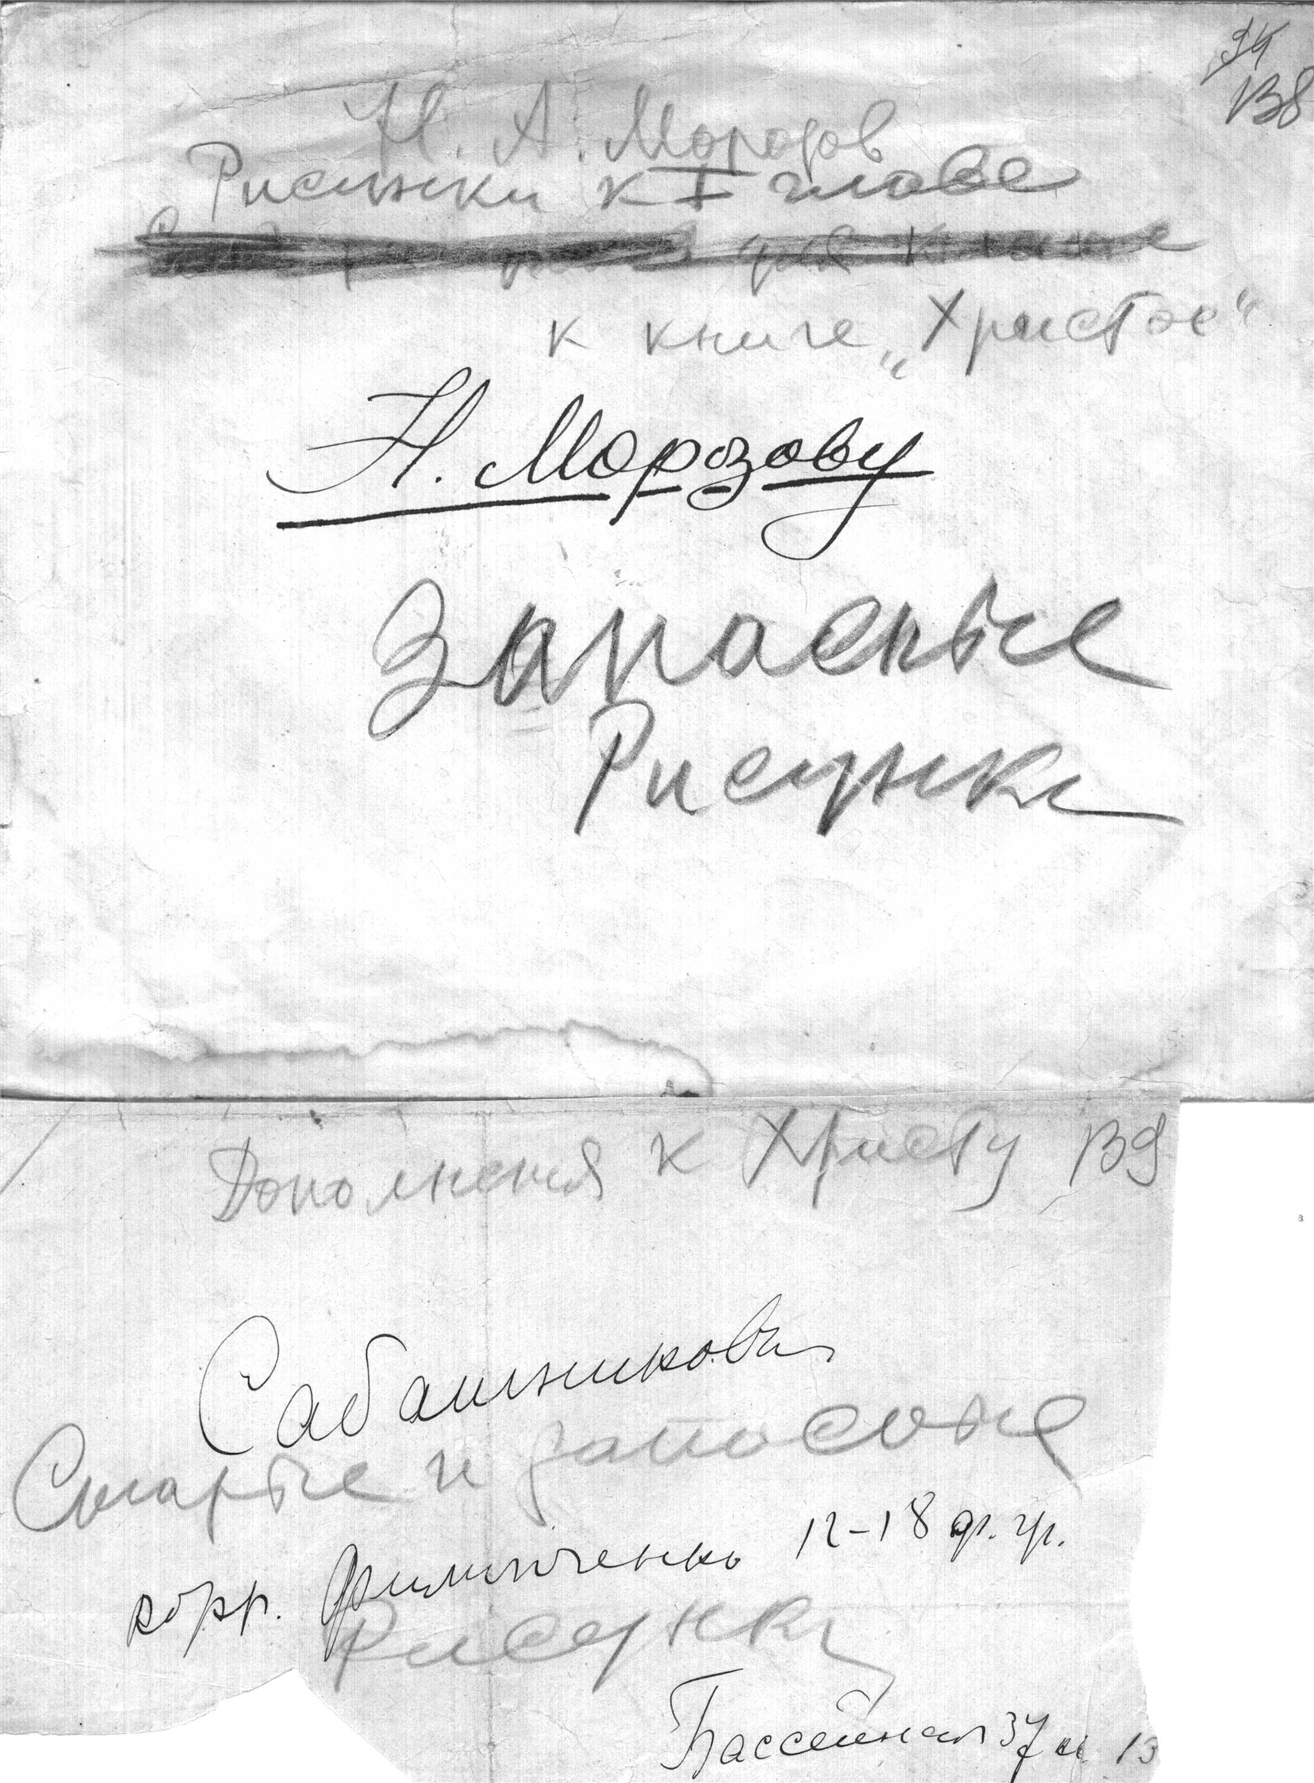 94
138
Н. А. Морозов
Рисунки к I главе
для книги
к книге „Христос"
Н. Морозову
Запасные
Рисунки
Дополнения к Христу 139
Сабашникова
Старые и запасные
корр. Филипченко 12-18 ф. гр.
Рисунки
Бассейная 37 и 13